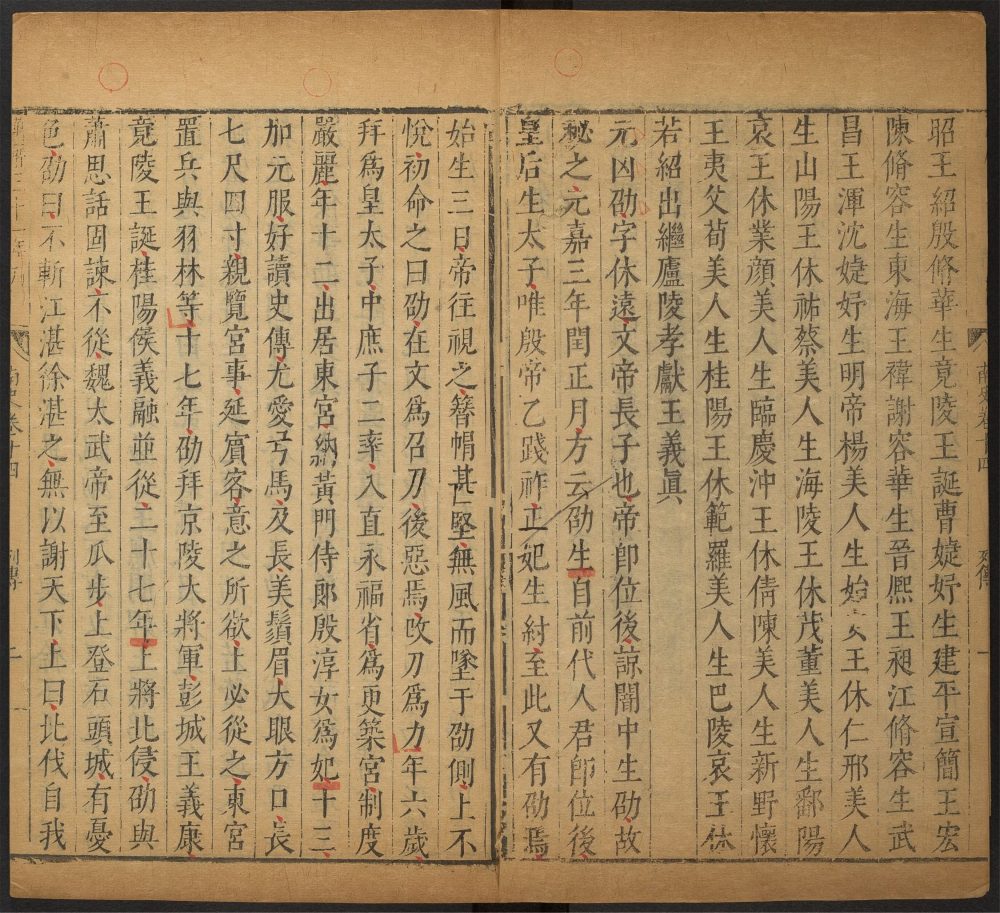 昭王紹殷脩華生竟陵王誕曹婕妤生建平宣簡王宏
陳脩容生東海王禕謝容華生晉熙王昶江脩容生武
昌王渾沈婕妤生明帝楊美人生始安王休仁邢美人
生山陽王休祐蔡美人生海陵王休茂董美人生鄱陽
哀王休業顏美人生臨慶沖王休倩陳美人生新野懷
王夷父荀美人生桂陽王休範羅美人生巴陵哀王休
若紹出繼廬陵孝獻王義眞
元凶劭字休遠文帝長子也帝卽位後諒闇中生劭故
秘之元嘉三年閏正月方云劭生自前代人君卽位後
皇后生太子唯殷帝乙踐祚正妃生紂至此又有劭焉
始生三日帝往視之簪帽甚堅無風而墜于劭側上不
悅初命之曰劭在文爲召刀後惡焉攺刀爲力年六歲
拜爲皇太子中庶子二率入直永福省爲更築宮制度
嚴麗年十二出居東宮納黃門侍郎殷淳女爲妃十三
加元服好讀史傳尤愛弓馬及長美鬚眉大眼方口長
七尺四寸親覽宮事延賓客意之所欲上必從之東宮
置兵與羽林等十七年劭拜京陵大將軍彭城王義康
竟陵王誕桂陽侯義融並從二十七年上將北侵劭與
蕭思話固諫不從魏太武帝至瓜步上登石頭城有憂
色劭曰不斬江湛徐湛之無以謝天下上曰北伐自我
南史卷十四
列傳
二